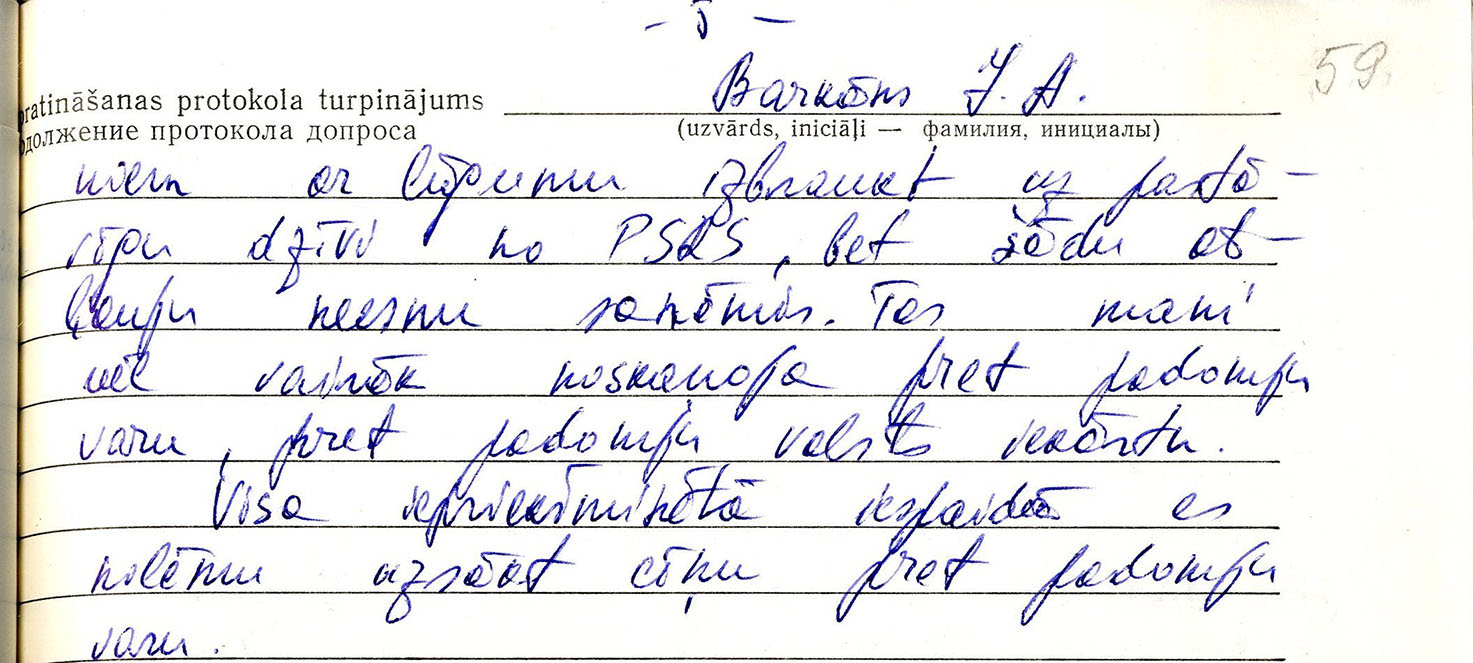 - 5 -
59.
pratināšanas protokola turpinājums Barkāns J. A.
одолжение протокола допроса (uzvārds, iniciāļi — фамилия, инициалы)
niem ar lūgumu izbraukt uz pastā-
vīgu dzīvi no PSRS, bet šādu at-
ļauju neesmu saņēmis. Tas mani
vēl vairāk noskaņoja pret padomju
varu, pret padomju valsts iekārtu.
Visa iepriekšminētā iespaidā es
nolēmu uzsākt cīņu pret padomju
varu.